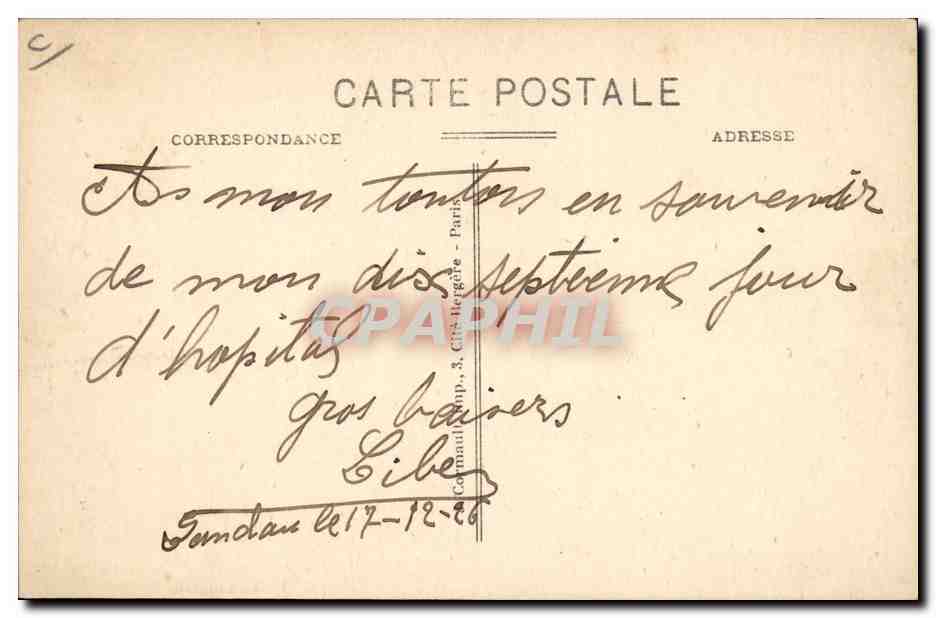 CARTE POSTALE
CORRESPONDANCE
ADRESSE
mon tonton en souvenir
de mon dix septieme jour
d'hopital
gros baisers
Landau le 17-12-26
Cormault Imp., 3, Cité Bergère - Paris
CPAPHIL